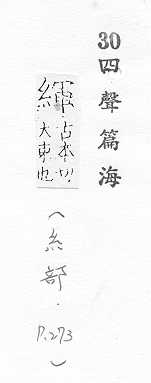 30四聲篇海
緷古本切
大束也
(糸部．P.273)